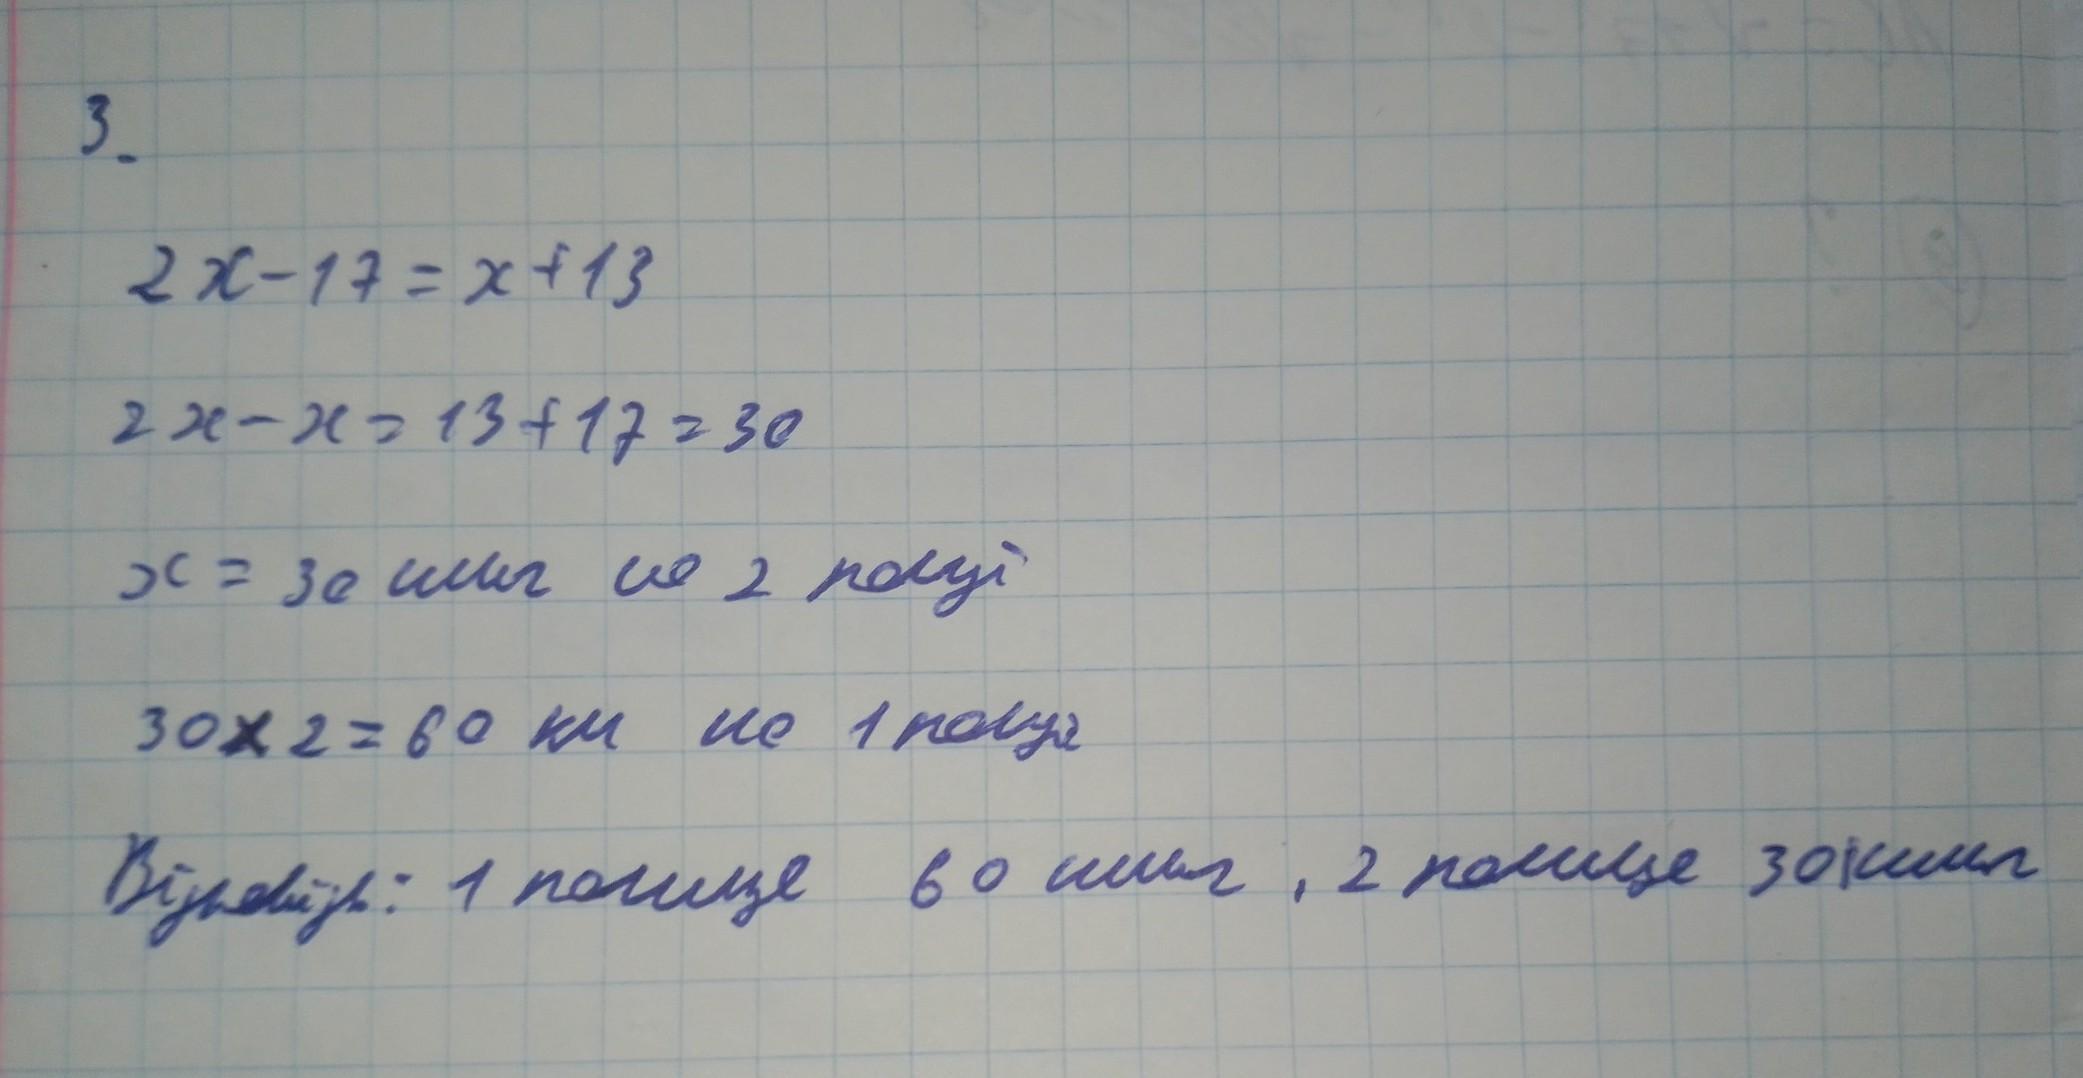 3.
2x-17=x+13
2x-x=13+17=30
x=30 книг на 2 полиці
30x2=60 кн на 1 полиці
Відповідь: 1 полиця 60 книг, 2 полиця 30 книг